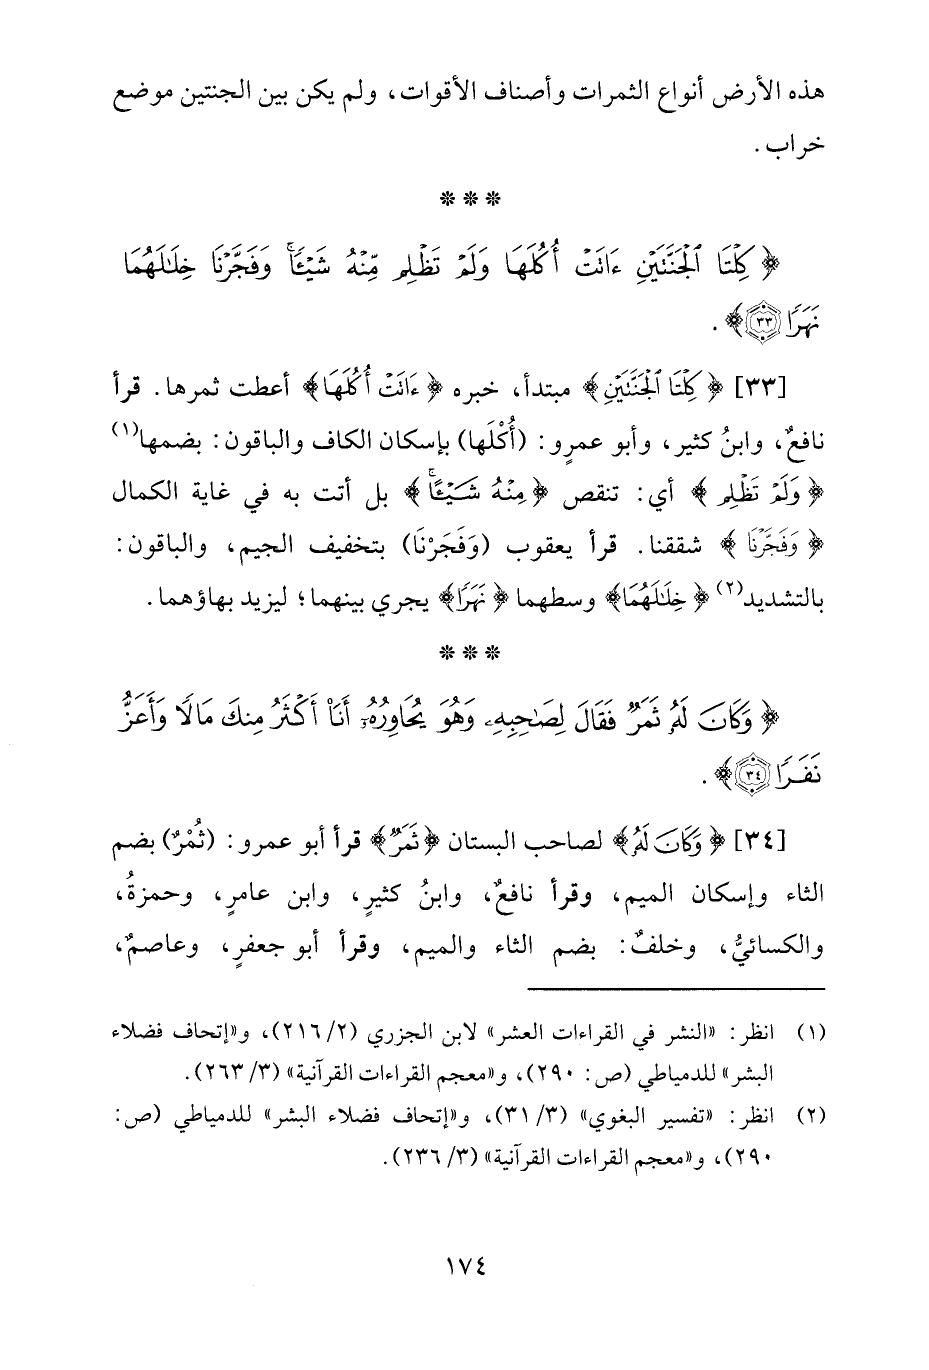 هذه الأرض أنواع الثمرات وأصناف الأقوات، ولم يكن بين الجنتين موضع
خراب.
* * *
﴿كِلْتَا ٱلْجَنَّتَيْنِ ءَاتَتْ أُكُلَهَا وَلَمْ تَظْلِم مِّنْهُ شَيْـًٔا ۚ وَفَجَّرْنَا خِلَـٰلَهُمَا
نَهَرًا ۝٣٣﴾.
[٣٣] ﴿كِلْتَا ٱلْجَنَّتَيْنِ﴾ مبتدأ، خبره ﴿ءَاتَتْ أُكُلَهَا﴾ أعطت ثمرها. قرأ
نافعٌ، وابنُ كثير، وأبو عمرٍو: (أُكْلَها) بإسكان الكاف والباقون: بضمها(١)
﴿وَلَمْ تَظْلِم﴾ أي: تنقص ﴿مِنْهُ شَيْـًٔا ۚ﴾ بل أتت به في غاية الكمال
﴿وَفَجَّرْنَا﴾ شققنا. قرأ يعقوب (وَفَجَرْنَا) بتخفيف الجيم، والباقون:
بالتشديد(٢) ﴿خِلَـٰلَهُمَا﴾ وسطهما ﴿نَهَرًا﴾ يجري بينهما؛ ليزيد بهاؤهما.
* * *
﴿وَكَانَ لَهُۥ ثَمَرٌ فَقَالَ لِصَـٰحِبِهِۦ وَهُوَ يُحَاوِرُهُۥٓ أَنَا۠ أَكْثَرُ مِنكَ مَالًا وَأَعَزُّ
نَفَرًا ۝٣٤﴾.
[٣٤] ﴿وَكَانَ لَهُۥ﴾ لصاحب البستان ﴿ثَمَرٌ﴾ قرأ أبو عمرو: (ثُمْرٌ) بضم
الثاء وإسكان الميم، وقرأ نافعٌ، وابنُ كثيرٍ، وابن عامرٍ، وحمزةُ،
والكسائيُّ، وخلفٌ: بضم الثاء والميم، وقرأ أبو جعفرٍ، وعاصمٌ،
(١) انظر: «النشر في القراءات العشر» لابن الجزري (٢/ ٢١٦)، و«إتحاف فضلاء
البشر» للدمياطي (ص: ٢٩٠)، و«معجم القراءات القرآنية» (٣/ ٢٦٣).
(٢) انظر: «تفسير البغوي» (٣/ ٣١)، و«إتحاف فضلاء البشر» للدمياطي (ص:
٢٩٠)، و«معجم القراءات القرآنية» (٣/ ٢٣٦).
١٧٤